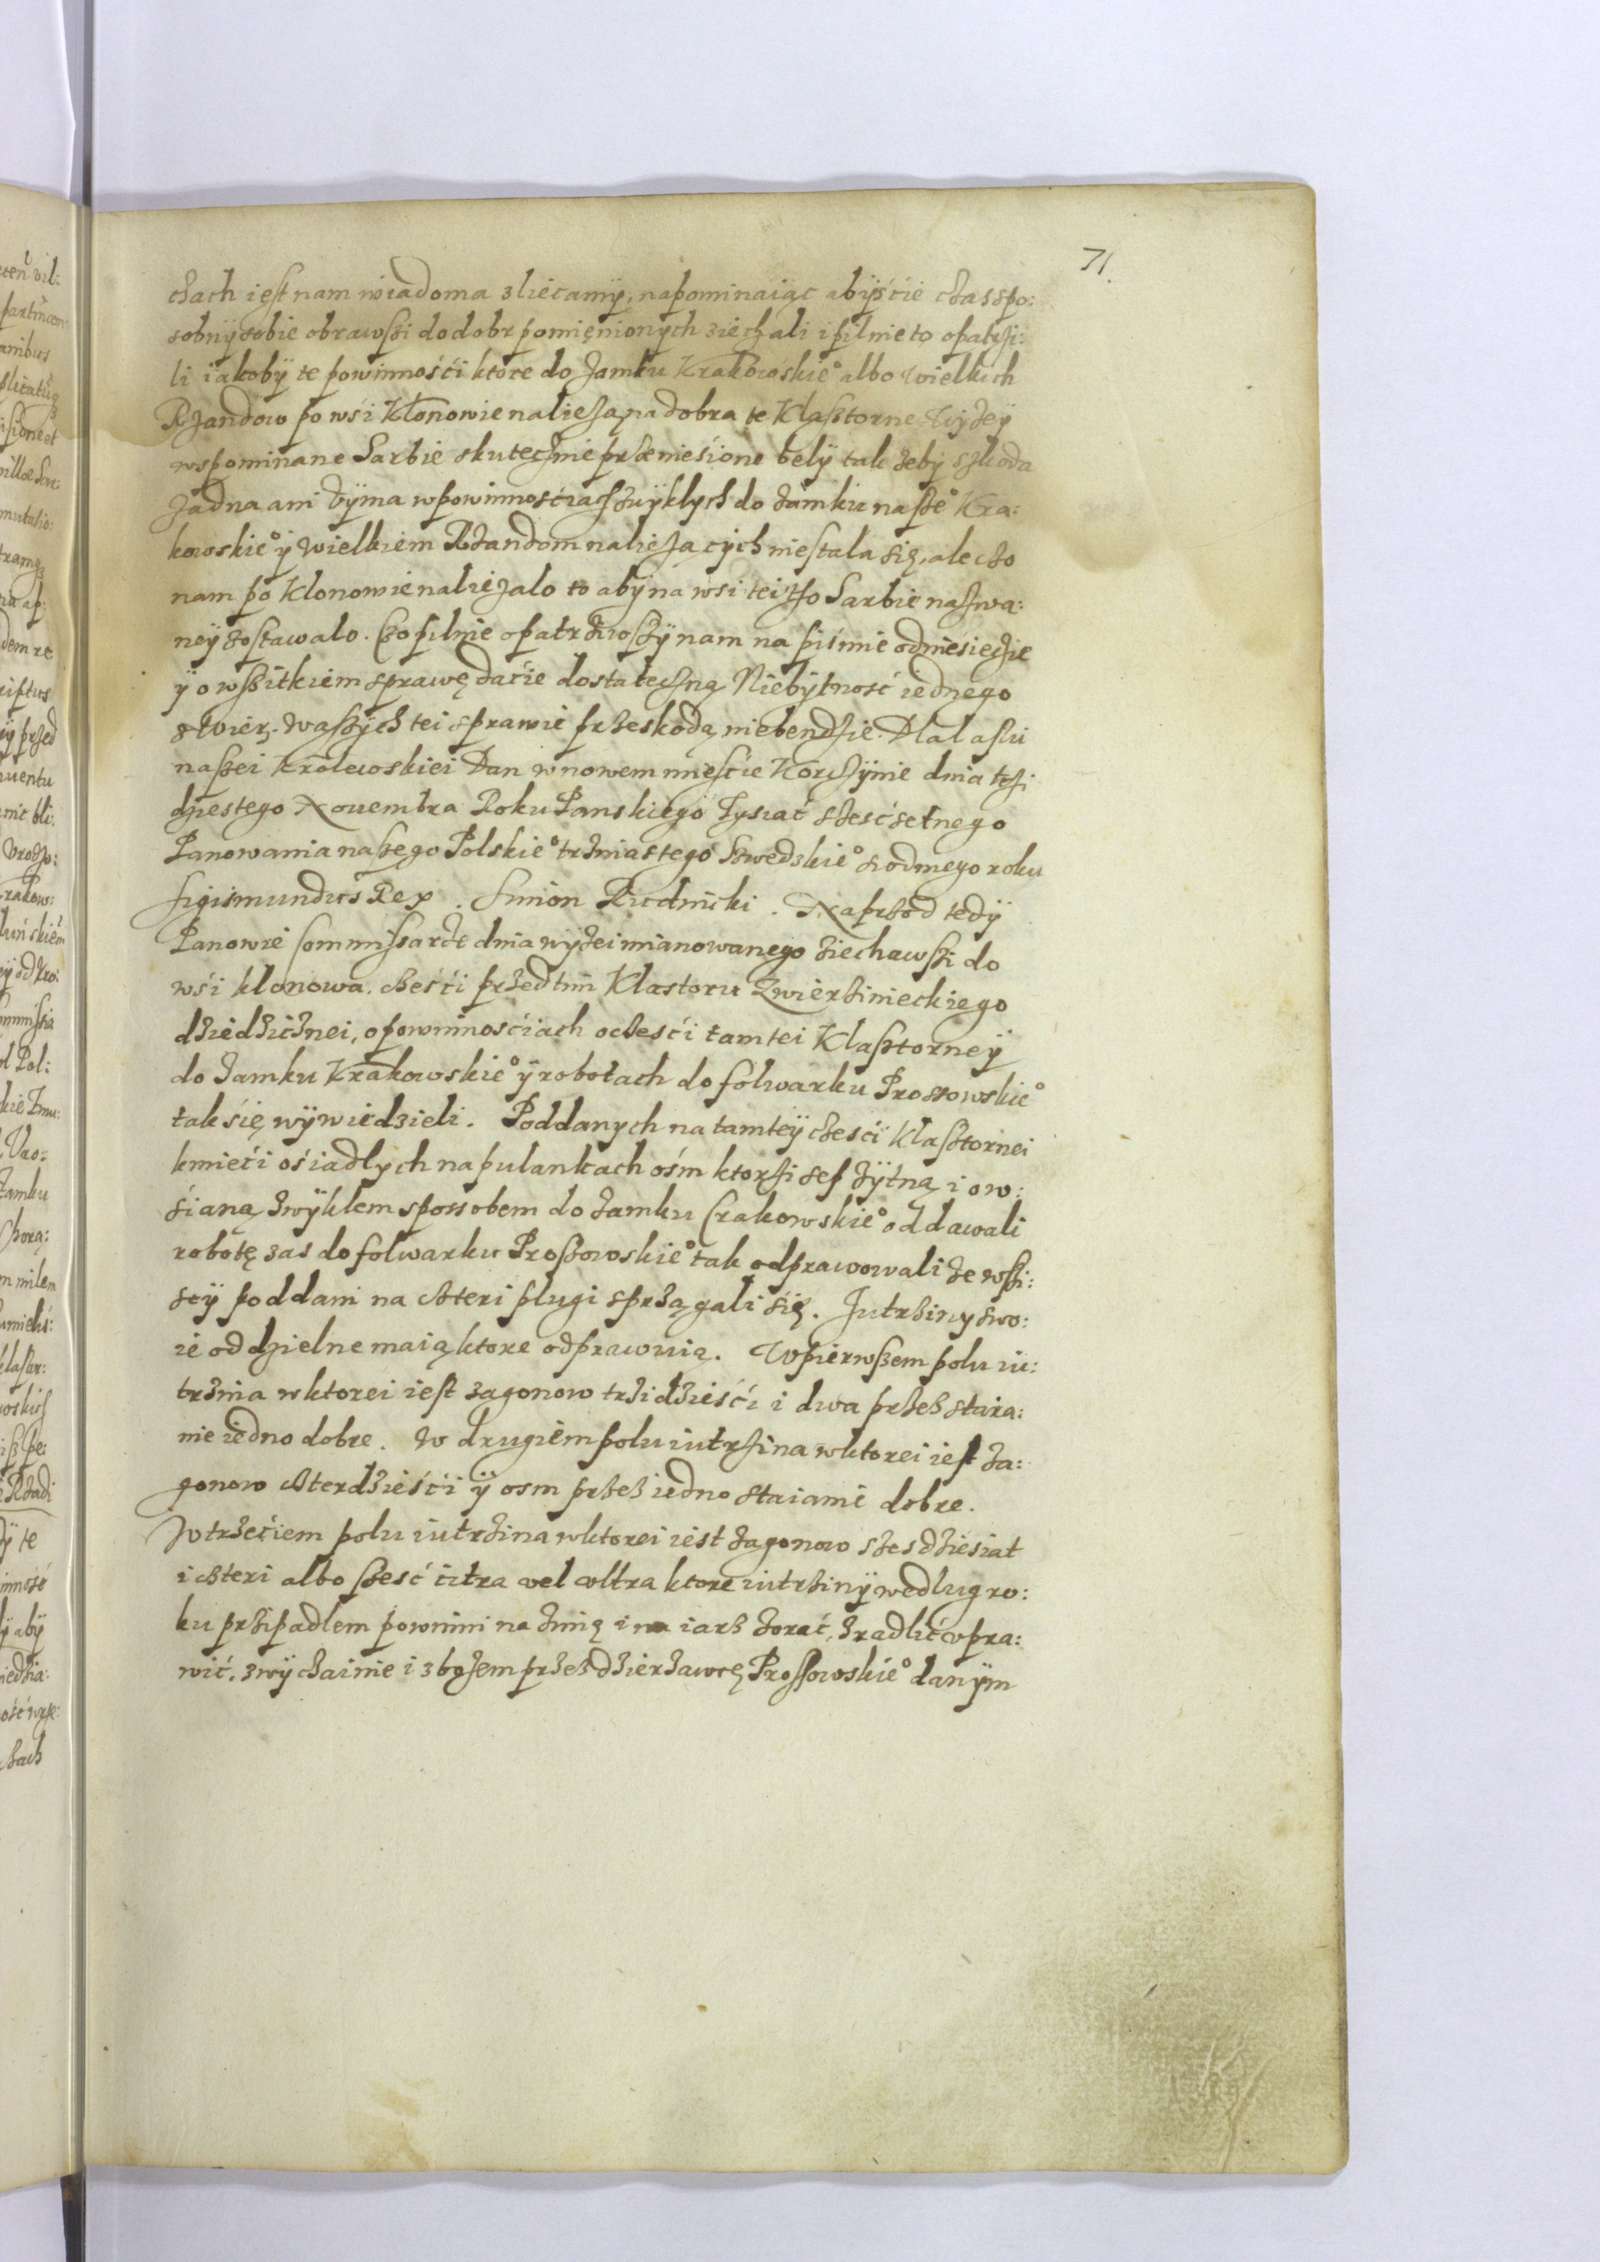 71.
chach iest nam wiadoma zliecamÿ, napominaiąc abÿśćie czas spo:
sobnÿ sobie obrawszi do dobr pomięnionych ziechali i pilnie to opatrzi:
li iakobÿ te powinnośći ktore do Zamku Krakowskie° albo Wielkich
Rzandow po wśi Klonowie nalieżą na dobra te Klasztorne Wyżeÿ
wspominane Sarbie skutecznie przeniesione belÿ tak żebÿ szkoda
Żadna ani Vÿma w powinnośćiach zwÿklych do zamku nasze° Kra:
kowskie° ÿ Wielkiem Rzandom należącÿch nie stala się, ale czo
nam po Klonowie nalieżalo to abÿ na wsi tei tÿo Sarbie nazwa:
neÿ zostawalo. Czo pilnie opatrziwszÿ nam na piśmie odniesiecie
ÿ o wszitkiem sprawę daćie dostateczną Niebÿtność iednego
z Wier. Waszÿch tei sprawie przeskodą niebendzie. Dla laski
naszei Krolewskiei Dan w nowem mieśćie Korczÿnie dnia trzi
dziestego Nouembra Roku Panskiego Tysiąć szesćsetnego
Panowania naszego Polskie° trzinastego Szwedzkie° siodmego roku
Sigismundus Rex. Simon Rudnicki. Naprzod tedÿ
Panowie Commissarze dnia wyżei mianowanego ziechawszi do
wśi klonowa. częśći przedtim Klastoru Zwierzinieckiego
dziedzicznei, o powinnośćiach oczesći tamtei Klasztorneÿ
do Zamku Krakowskie° ÿ robotach do folwarku Proszowskie°
tak się wÿwiedzieli. Poddanych na tamteÿ częsći Klasztornei
kmieći ośiadlych na pulankach ośm ktorzi sep żÿtną i ow:
śianą zwÿklem sposobem do zamku Crakowskie° oddawali
robotę zas do folwarku Proszowskie° tak odprawowali że wszi:
scÿ poddani na czteri plugi sprzągali się. Jutrziny swo:
ie oddzielne maią ktore odprawuią. W pierwszem polu iu:
trznia w ktorei iest zagonow trzidzieśći i dwa przez staia:
nie iedno dobre. W drugiem polu iutrzina w ktorei iest za:
gonow czterdzieśći ÿ osm przez iedno staianie dobre.
W trzećiem polu iutrzina w ktorei iest zagonow szesdziesiat
i czteri albo szesć citra vel vltra ktore iutrzinÿ wedlug ro:
ku przipadlem powinni na zimię i na iarz zorać, zradlić vpra:
wić, zwÿczainie i zbożem przez dzierżawcę Proszowskie° danÿm